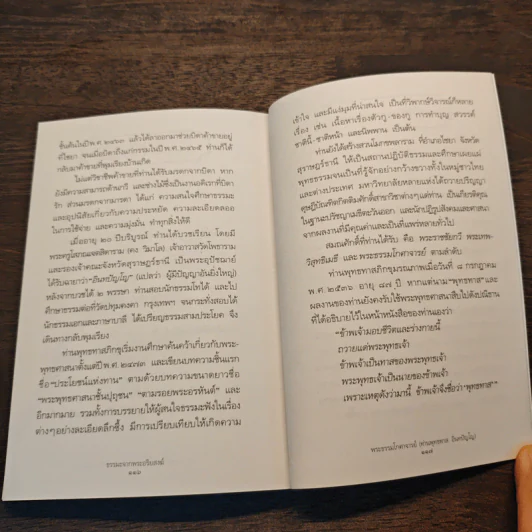 ชั้นต้นในปีพ.ศ. ๒๔๖๓ แล้วได้ลาออกมาช่วยบิดาค้าขายอยู่
ที่ไชยา จนเมื่อบิดาถึงแก่กรรมในปีพ.ศ. ๒๔๖๕ ท่านก็ได้
กลับมาค้าขายที่พุมเรียงบ้านเกิด
ไม่แต่วิชาชีพค้าขายที่ท่านได้รับมรดกจากบิดา หาก
ยังมีความสามารถด้านกวี และช่างไม้ซึ่งเป็นงานอดิเรกที่บิดา
รัก ส่วนมรดกจากมารดา ได้แก่ ความสนใจศึกษาธรรมะ
และอุปนิสัยเกี่ยวกับความประหยัด ความละเอียดลออ
ในการใช้จ่าย และความมุ่งมั่น ทำทุกสิ่งให้ดี
เมื่ออายุ ๒๐ ปีบริบูรณ์ ท่านได้บวชเรียน โดยมี
พระครูโสภณเจตสิการาม (คง วิมาโล) เจ้าอาวาสวัดโพธาราม
และรองเจ้าคณะจังหวัดสุราษฎร์ธานี เป็นพระอุปัชฌาย์
ได้รับฉายาว่า“อินทปัญโญ” (แปลว่า ผู้มีปัญญาอันยิ่งใหญ่)
หลังจากบวชได้ ๒ พรรษา ท่านสอบนักธรรมโทได้ และไป
ศึกษาธรรมต่อที่วัดปทุมคงคา กรุงเทพฯ จนกระทั่งสอบได้
นักธรรมเอกและภาษาบาลี ได้เปรียญธรรมสามประโยค จึง
เดินทางกลับพุมเรียง
ท่านพุทธทาสภิกขุเริ่มงานศึกษาค้นคว้าเกี่ยวกับพระ-
พุทธศาสนาตั้งแต่ปีพ.ศ. ๒๔๗๓ และเขียนบทความชิ้นแรก
ชื่อ“ประโยชน์แห่งทาน” ตามด้วยบทความขนาดยาวชื่อ
“พระพุทธศาสนาชั้นปุถุชน” “ตามรอยพระอรหันต์” และ
อีกมากมาย รวมทั้งการบรรยายให้ผู้สนใจธรรมะฟังในเรื่อง
ต่างๆอย่างละเอียดลึกซึ้ง มีการเปรียบเทียบให้เกิดความ
ธรรมะจากพระอริยสงฆ์
๑๑๖
เข้าใจ และมีแง่มุมที่น่าสนใจ เป็นที่วิพากษ์วิจารณ์ก็หลาย
เรื่อง เช่น เนื้อหาเรื่องตัวกู-ของกู การทำบุญ สวรรค์
ชาตินี้-ชาติหน้า และนิพพาน เป็นต้น
ท่านยังได้สร้างสวนโมกขพลาราม ที่อำเภอไชยา จังหวัด
สุราษฎร์ธานี ให้เป็นสถานปฏิบัติธรรมและศึกษาเผยแผ่
พุทธธรรมจนเป็นที่รู้จักอย่างกว้างขวางทั้งในหมู่ชาวไทย
และต่างประเทศ มหาวิทยาลัยหลายแห่งได้ถวายปริญญา
ดุษฎีบัณฑิตกิตติมศักดิ์สาขาวิชาต่างๆแด่ท่าน เป็นเกียรติคุณ
ในฐานะปรัชญาเมธีตะวันออก และนักปฏิรูปสังคมและศาสนา
จากผลงานที่มีคุณค่าและเป็นที่แพร่หลายทั่วไป
สมณศักดิ์ที่ท่านได้รับ คือ พระราชชัยกวี พระเทพ-
วิสุทธิเมธี และพระธรรมโกศาจารย์ ตามลำดับ
ท่านพุทธทาสภิกขุมรณภาพเมื่อวันที่ ๘ กรกฎาคม
พ.ศ. ๒๕๓๖ อายุ ๘๗ ปี หากแต่นาม“พุทธทาส”และ
ผลงานของท่านยังคงรับใช้พระพุทธศาสนาสืบไปดังปณิธาน
ที่ได้อธิบายไว้ในหน้าหนังสือของท่านเองว่า
“ข้าพเจ้ามอบชีวิตและร่างกายนี้
ถวายแด่พระพุทธเจ้า
ข้าพเจ้าเป็นทาสของพระพุทธเจ้า
พระพุทธเจ้าเป็นนายของข้าพเจ้า
เพราะเหตุดังว่ามานี้ ข้าพเจ้าจึงชื่อว่า “พุทธทาส””
พระธรรมโกศาจารย์ (ท่านพุทธทาส อินทปัญโญ)
๑๑๗